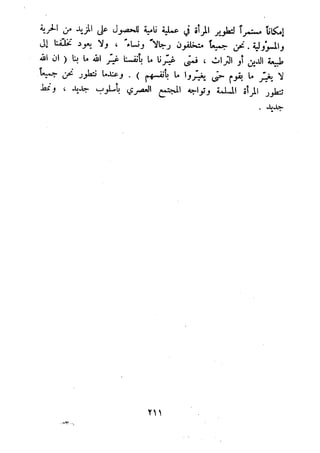 إمكاناً مستمراً لتطوير المرأة في عملية نامية للحصول على المزيد من الحرية
والمسؤولية . نحن جميعاً متخلفون رجالاً ونساءً ، ولا يعود تخلّفنا إلى
طبيعة الدين أو التراث ، فمتى غيّرنا ما بأنفسنا غيّر الله ما بنا ( ان الله
لا يغيّر ما بقوم حتى يغيّروا ما بأنفسهم ) . وعندما نتطور نحن جميعاً
تتطور المرأة المسلمة وتواجه المجتمع العصري بأسلوب جديد ، ونمط
جديد .
٢١١